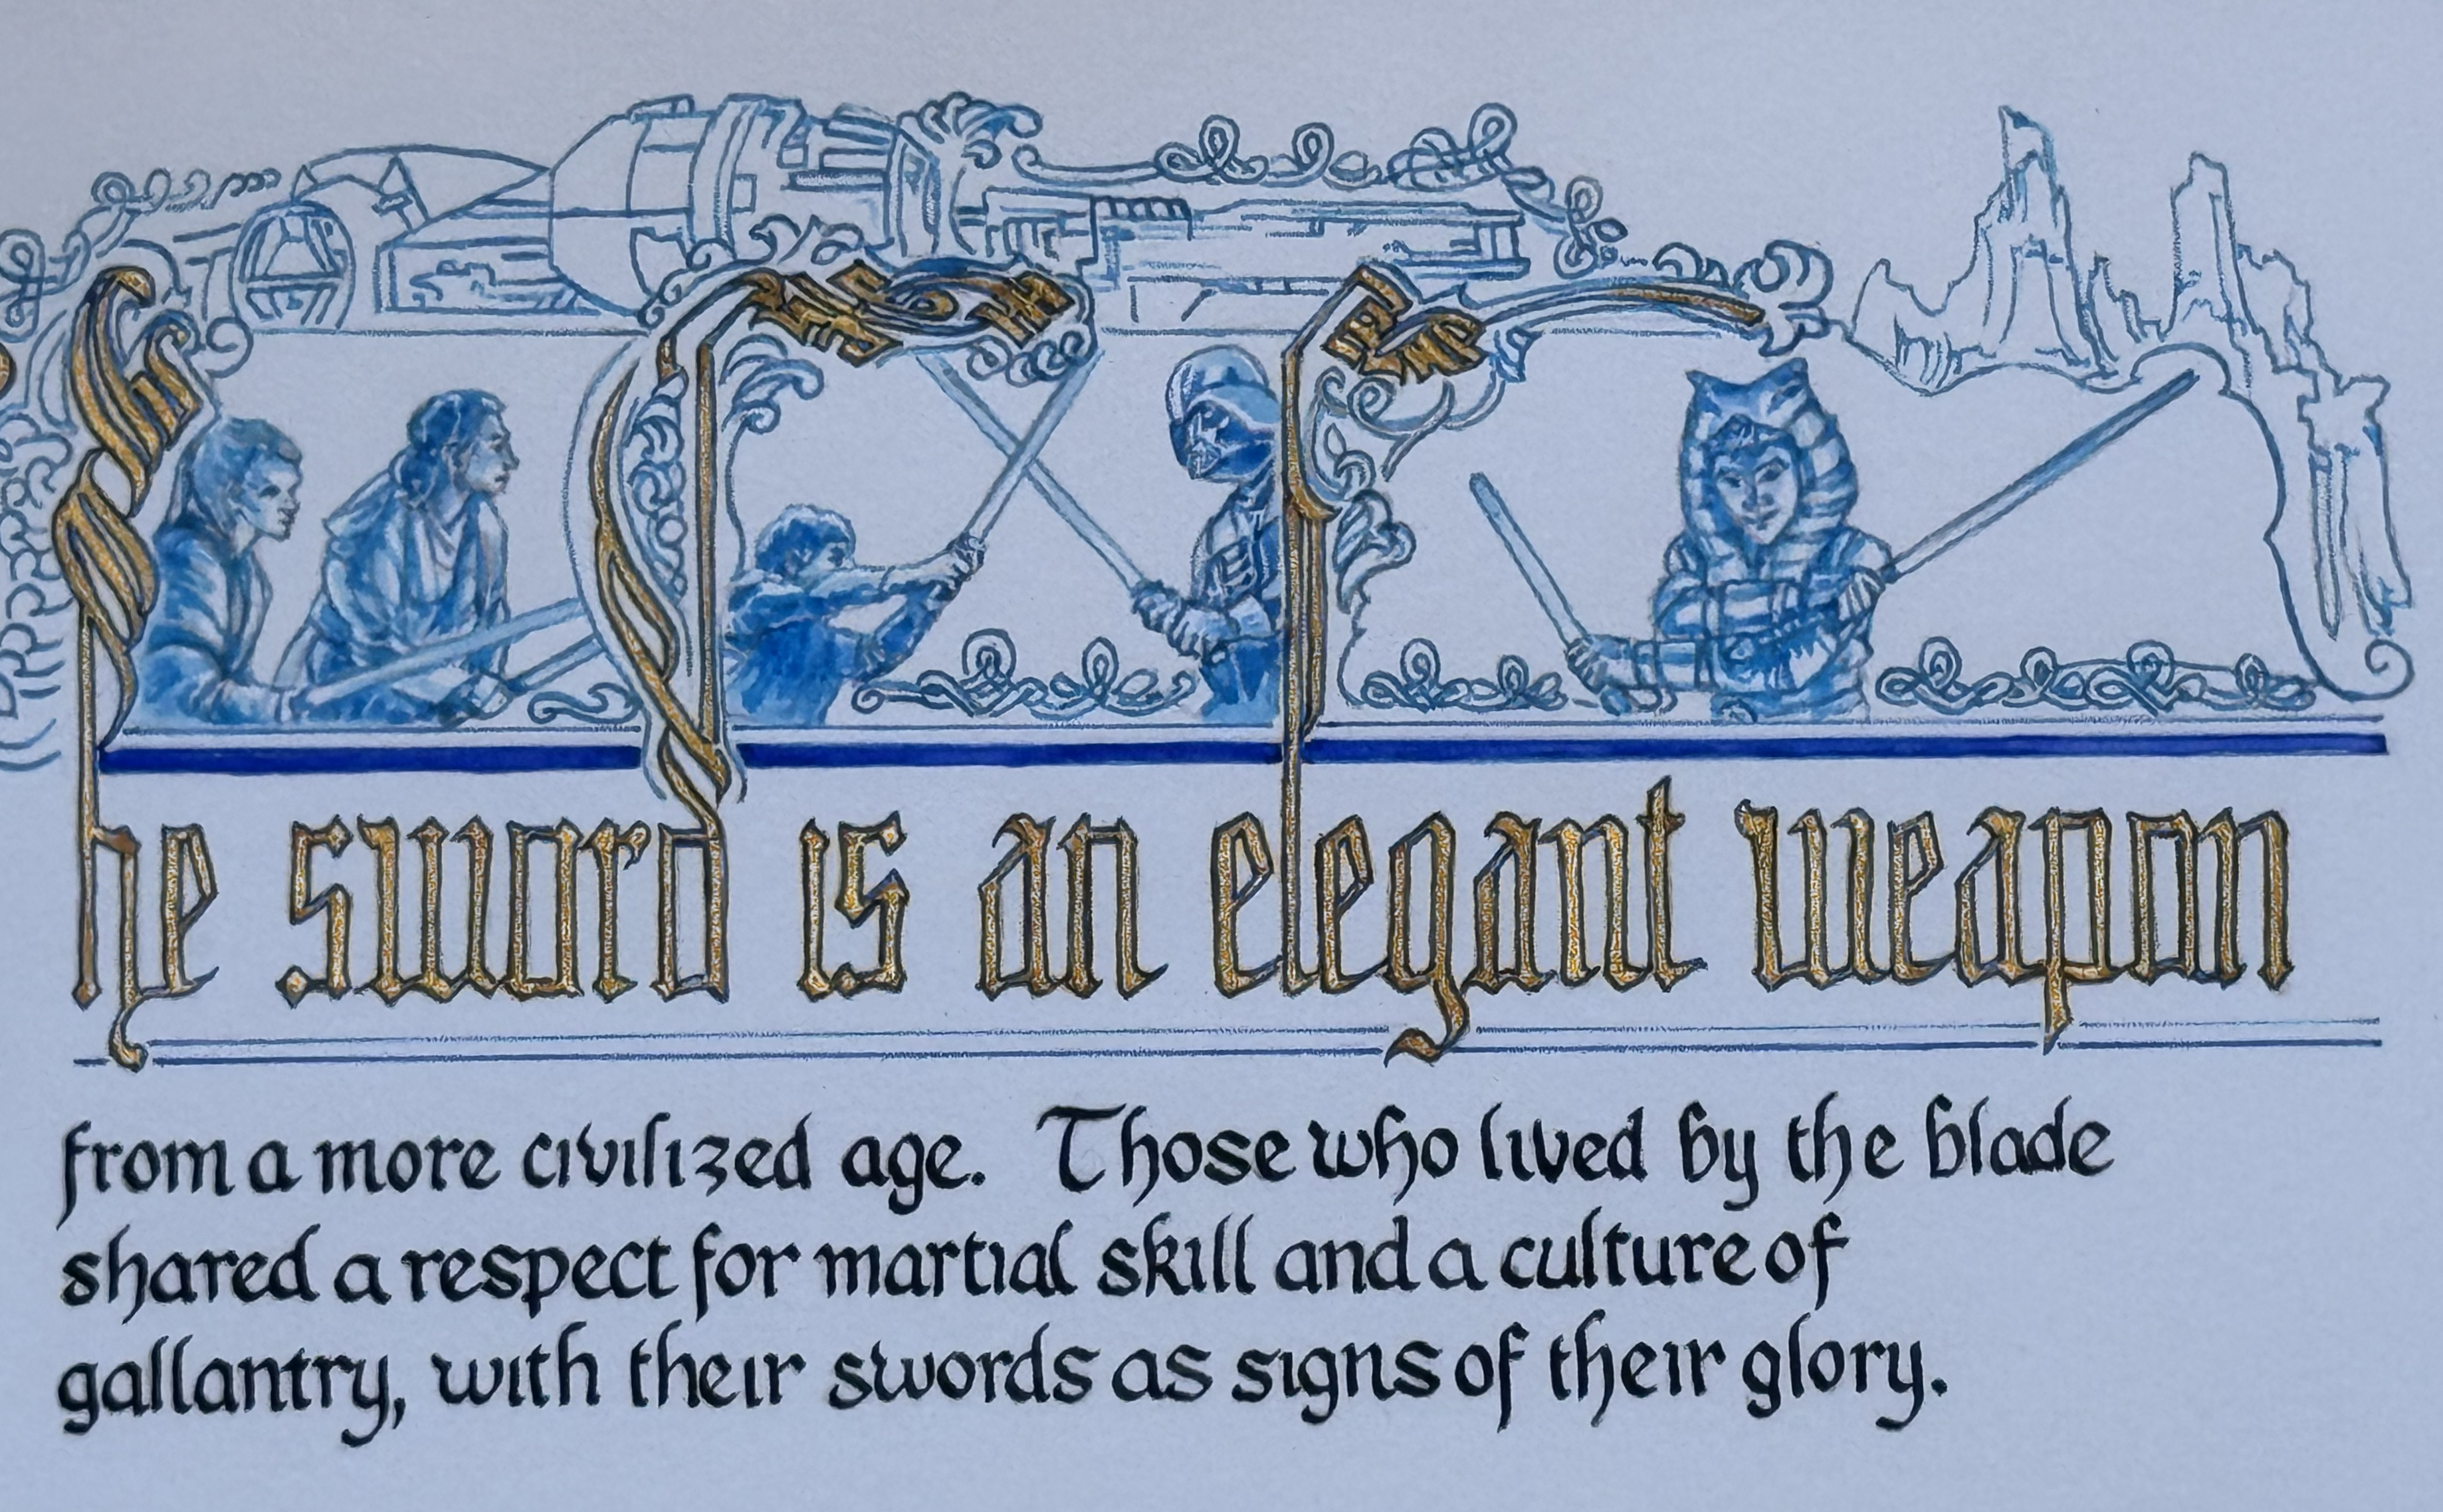 he sword is an elegant weapon
from a more civilized age. Those who lived by the blade
shared a respect for martial skill and a culture of
gallantry, with their swords as signs of their glory.